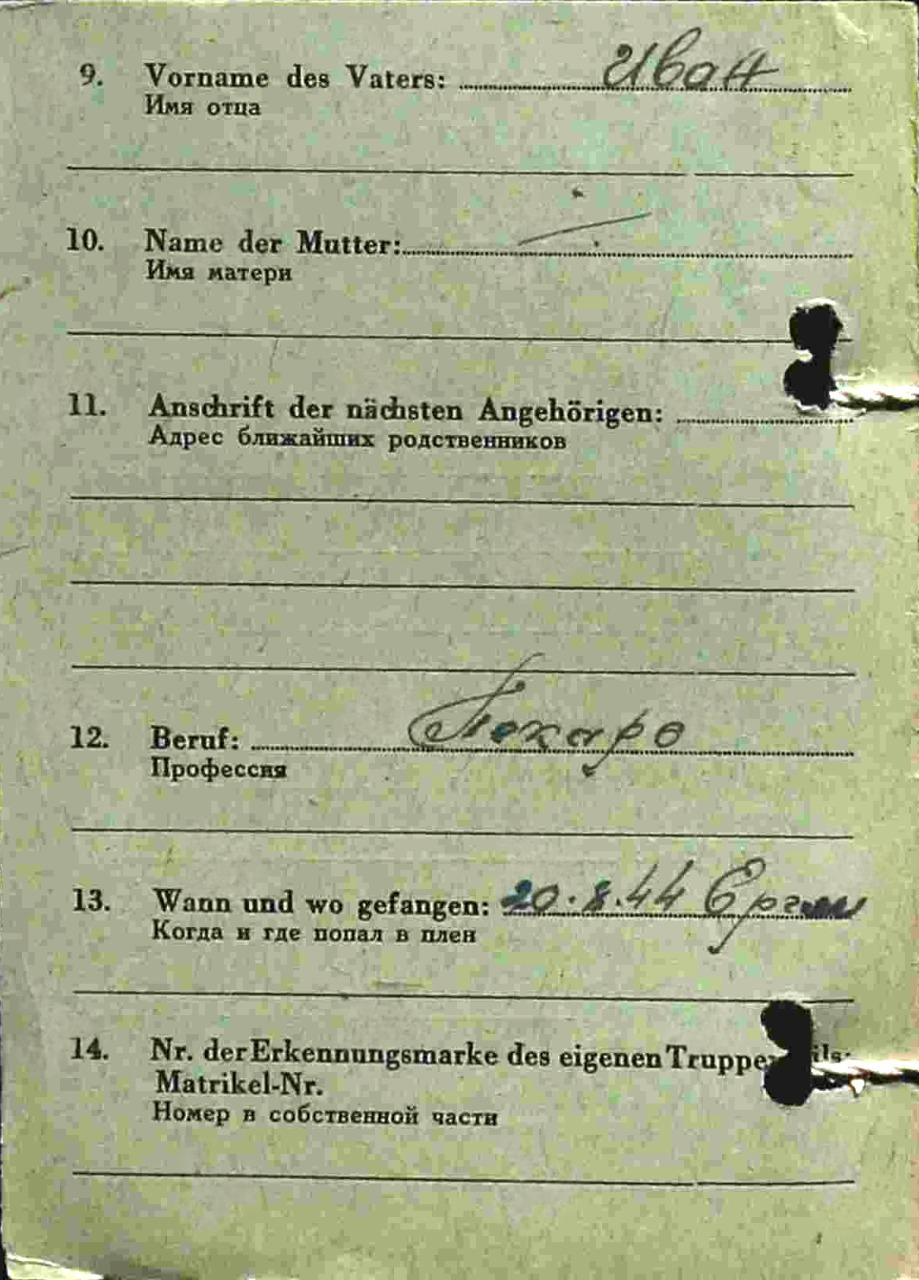 9. Vorname des Vaters: Иван
Имя отца
10. Name der Mutter: —
Имя матери
11. Anschrift der nächsten Angehörigen:
Адрес ближайших родственников
12. Beruf:
Профессия
13. Wann und wo gefangen: 20.8.44
Когда и где попал в плен
14. Nr. der Erkennungsmarke des eigenen
Matrikel-Nr.
Номер в собственной части